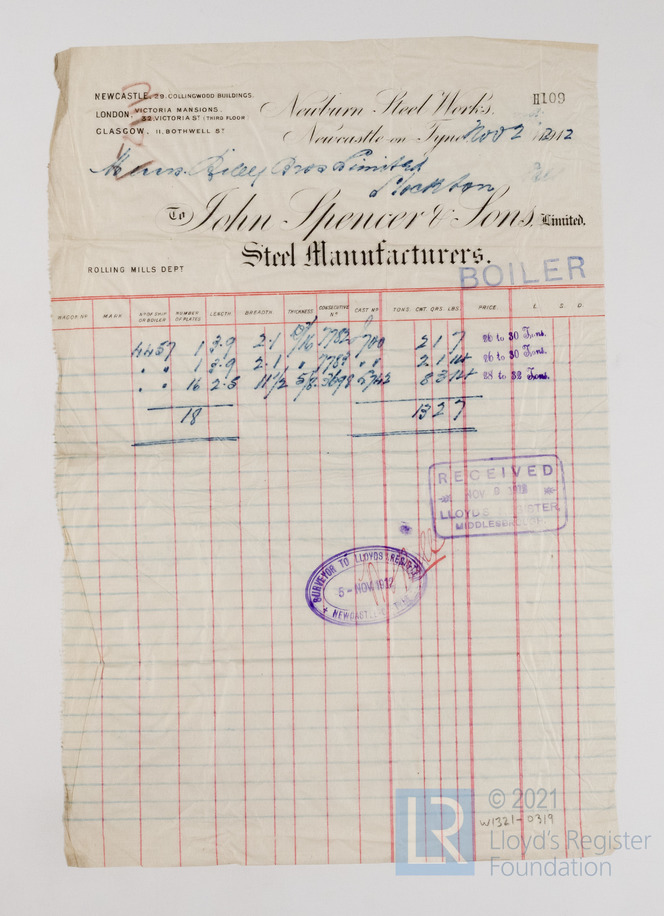 NEWCASTLE. 29. COLLINGWOOD BUILDINGS.
LONDON. VICTORIA MANSIONS.
32, VICTORIA ST (THIRD FLOOR
GLASGOW. 11, BOTHWELL ST
Newburn Steel Works.
H109
Newcastle-on-Tyne Nov 2 1912
Messrs Riley Bros Limited
Stockton
To John Spencer & Sons, Limited.
Steel Manufacturers.
ROLLING MILLS DEPT
BOILER
WAGON Nº MARK Nº OF SHIP OR BOILER NUMBER OF PLATES LENGTH BREADTH THICKNESS CONSECUTIVE Nº CAST Nº TONS. CWT. QRS. LBS. PRICE £. S. D.
4457 1 3.9 2.1 7782 700 2 1 7 26 to 30 Tons.
" " 1 3.9 2.1 " 7783 " " 2 1 14 26 to 30 Tons.
" " 16 2.5 11/2 5/8 3698 5742 8 3 14 28 to 32 Tons.
18 13 2 7
RECEIVED
NOV 1912
LLOYD'S REGISTER
MIDDLESBROUGH
SURVEYOR TO LLOYDS REGISTER
5 - NOV. 1912
NEWCASTLE
© 2021
W1321-0319
LR Lloyd's Register
Foundation